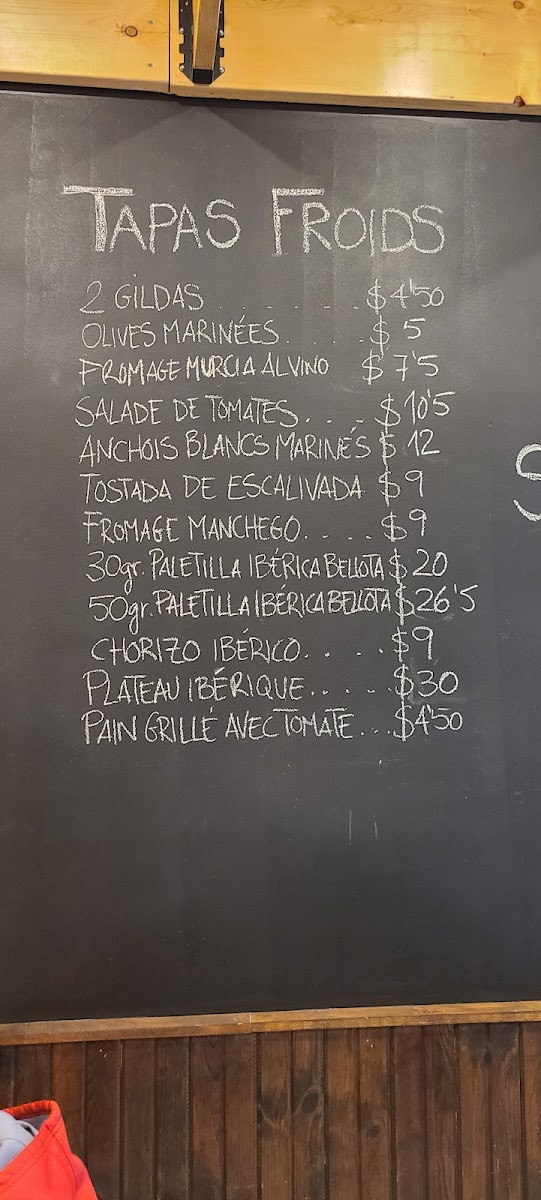 TAPAS FROIDS
2 GILDAS . . . . . . . $ 4'50
OLIVES MARINÉES . . . . . $ 5
FROMAGE MURCIA AL VINO $ 7'5
SALADE DE TOMATES . . . $ 10'5
ANCHOIS BLANCS MARINÉS $ 12
TOSTADA DE ESCALIVADA $ 9
FROMAGE MANCHEGO . . . . $ 9
30gr. PALETILLA IBÉRICA BELLOTA $ 20
50gr. PALETILLA IBÉRICA BELLOTA $ 26'5
CHORIZO IBÉRICO . . . . . $ 9
PLATEAU IBÉRIQUE . . . . . $ 30
PAIN GRILLÉ AVEC TOMATE . . . $ 4'50